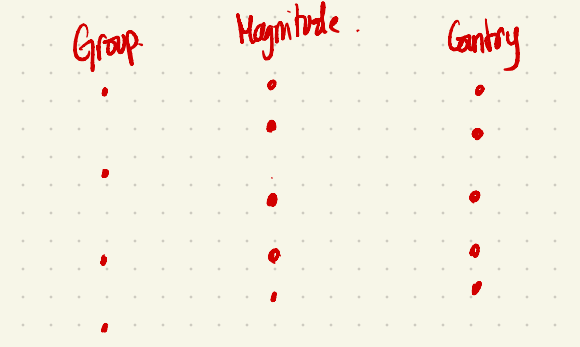 Group Magnitude Country